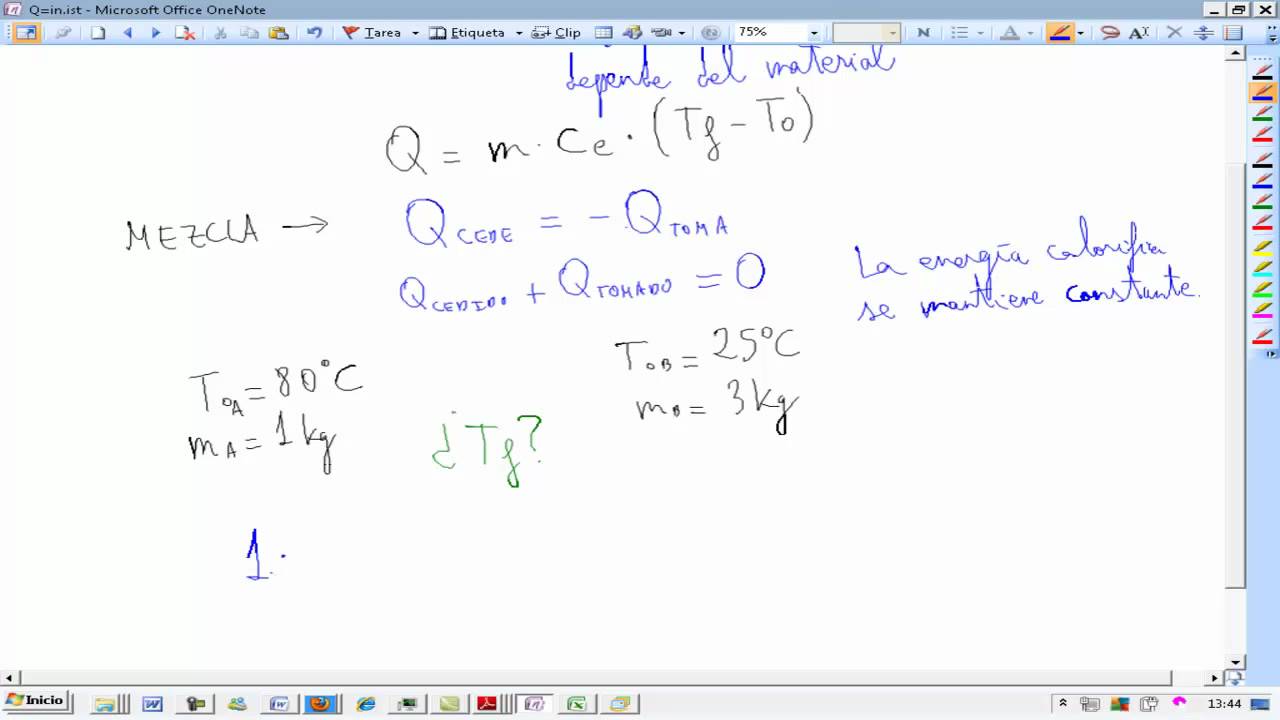 Q=in.ist - Microsoft Office OneNote
Tarea Etiqueta Clip 75% N A A
depente del material
Q = m · Ce · (Tf - To)
MEZCLA → QCEDE = - QTOMA
QCEDIDO + QTOMADO = 0
La energía calorifia
se mantiene constante.
ToA = 80°C
mA = 1 kg
ToB = 25°C
mB = 3 kg
¿Tf?
1 ·
Inicio
13:44